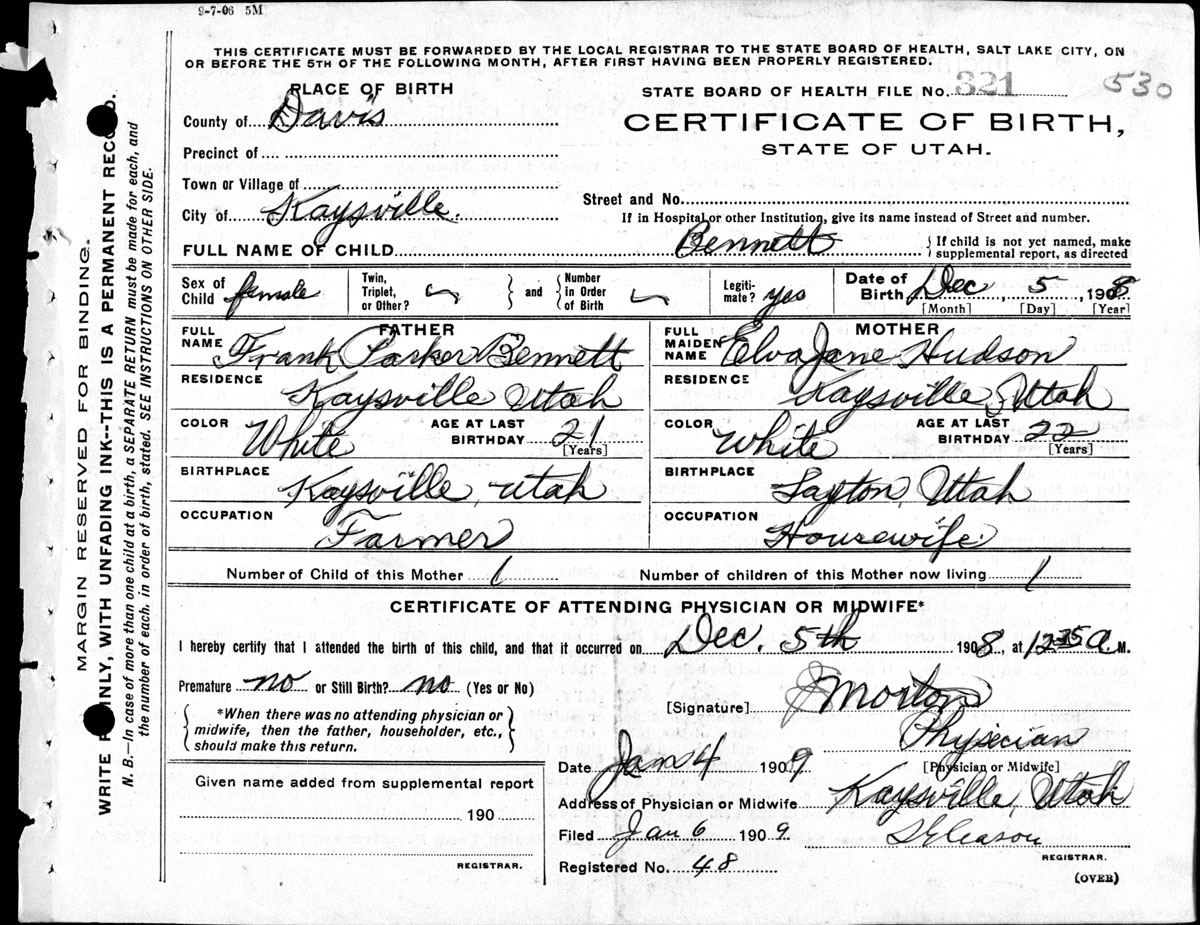 9-7-06 5M
THIS CERTIFICATE MUST BE FORWARDED BY THE LOCAL REGISTRAR TO THE STATE BOARD OF HEALTH, SALT LAKE CITY, ON
OR BEFORE THE 5TH OF THE FOLLOWING MONTH, AFTER FIRST HAVING BEEN PROPERLY REGISTERED.
PLACE OF BIRTH
STATE BOARD OF HEALTH FILE No. 321 530
County of Davis
CERTIFICATE OF BIRTH,
STATE OF UTAH.
Precinct of
Town or Village of
Street and No.
City of Kaysville.
If in Hospital or other Institution, give its name instead of Street and number.
FULL NAME OF CHILD Bennett
{If child is not yet named, make
supplemental report, as directed
Sex of Child female
Twin, Triplet, or Other? } and { Number in Order of Birth
Legitimate? yes
Date of Birth Dec 5, 1908
[Month] [Day] [Year]
FATHER
FULL NAME Frank Parker Bennett
RESIDENCE Kaysville Utah
COLOR White AGE AT LAST BIRTHDAY 21 [Years]
BIRTHPLACE Kaysville, Utah
OCCUPATION Farmer
MOTHER
FULL MAIDEN NAME Elva Jane Hudson
RESIDENCE Kaysville, Utah
COLOR White AGE AT LAST BIRTHDAY 22 [Years]
BIRTHPLACE Layton, Utah
OCCUPATION Housewife.
Number of Child of this Mother 1 Number of children of this Mother now living 1
CERTIFICATE OF ATTENDING PHYSICIAN OR MIDWIFE*
I hereby certify that I attended the birth of this child, and that it occurred on Dec. 5th 1908, at 12 35 A. M.
Premature no or Still Birth? no (Yes or No)
{*When there was no attending physician or
midwife, then the father, householder, etc.,
should make this return.}
[Signature] J Morton
Physician
[Physician or Midwife]
Date Jan 4 1909
Address of Physician or Midwife Kaysville, Utah
Filed Jan 6 1909 Gleason
REGISTRAR.
Registered No. 48
(OVER)
Given name added from supplemental report
190
REGISTRAR.
MARGIN RESERVED FOR BINDING.
WRITE INLY, WITH UNFADING INK--THIS IS A PERMANENT RECO D.
N. B.—In case of more than one child at a birth, a SEPARATE RETURN must be made for each, and
the number of each. in order of birth, stated. SEE INSTRUCTIONS ON OTHER SIDE.